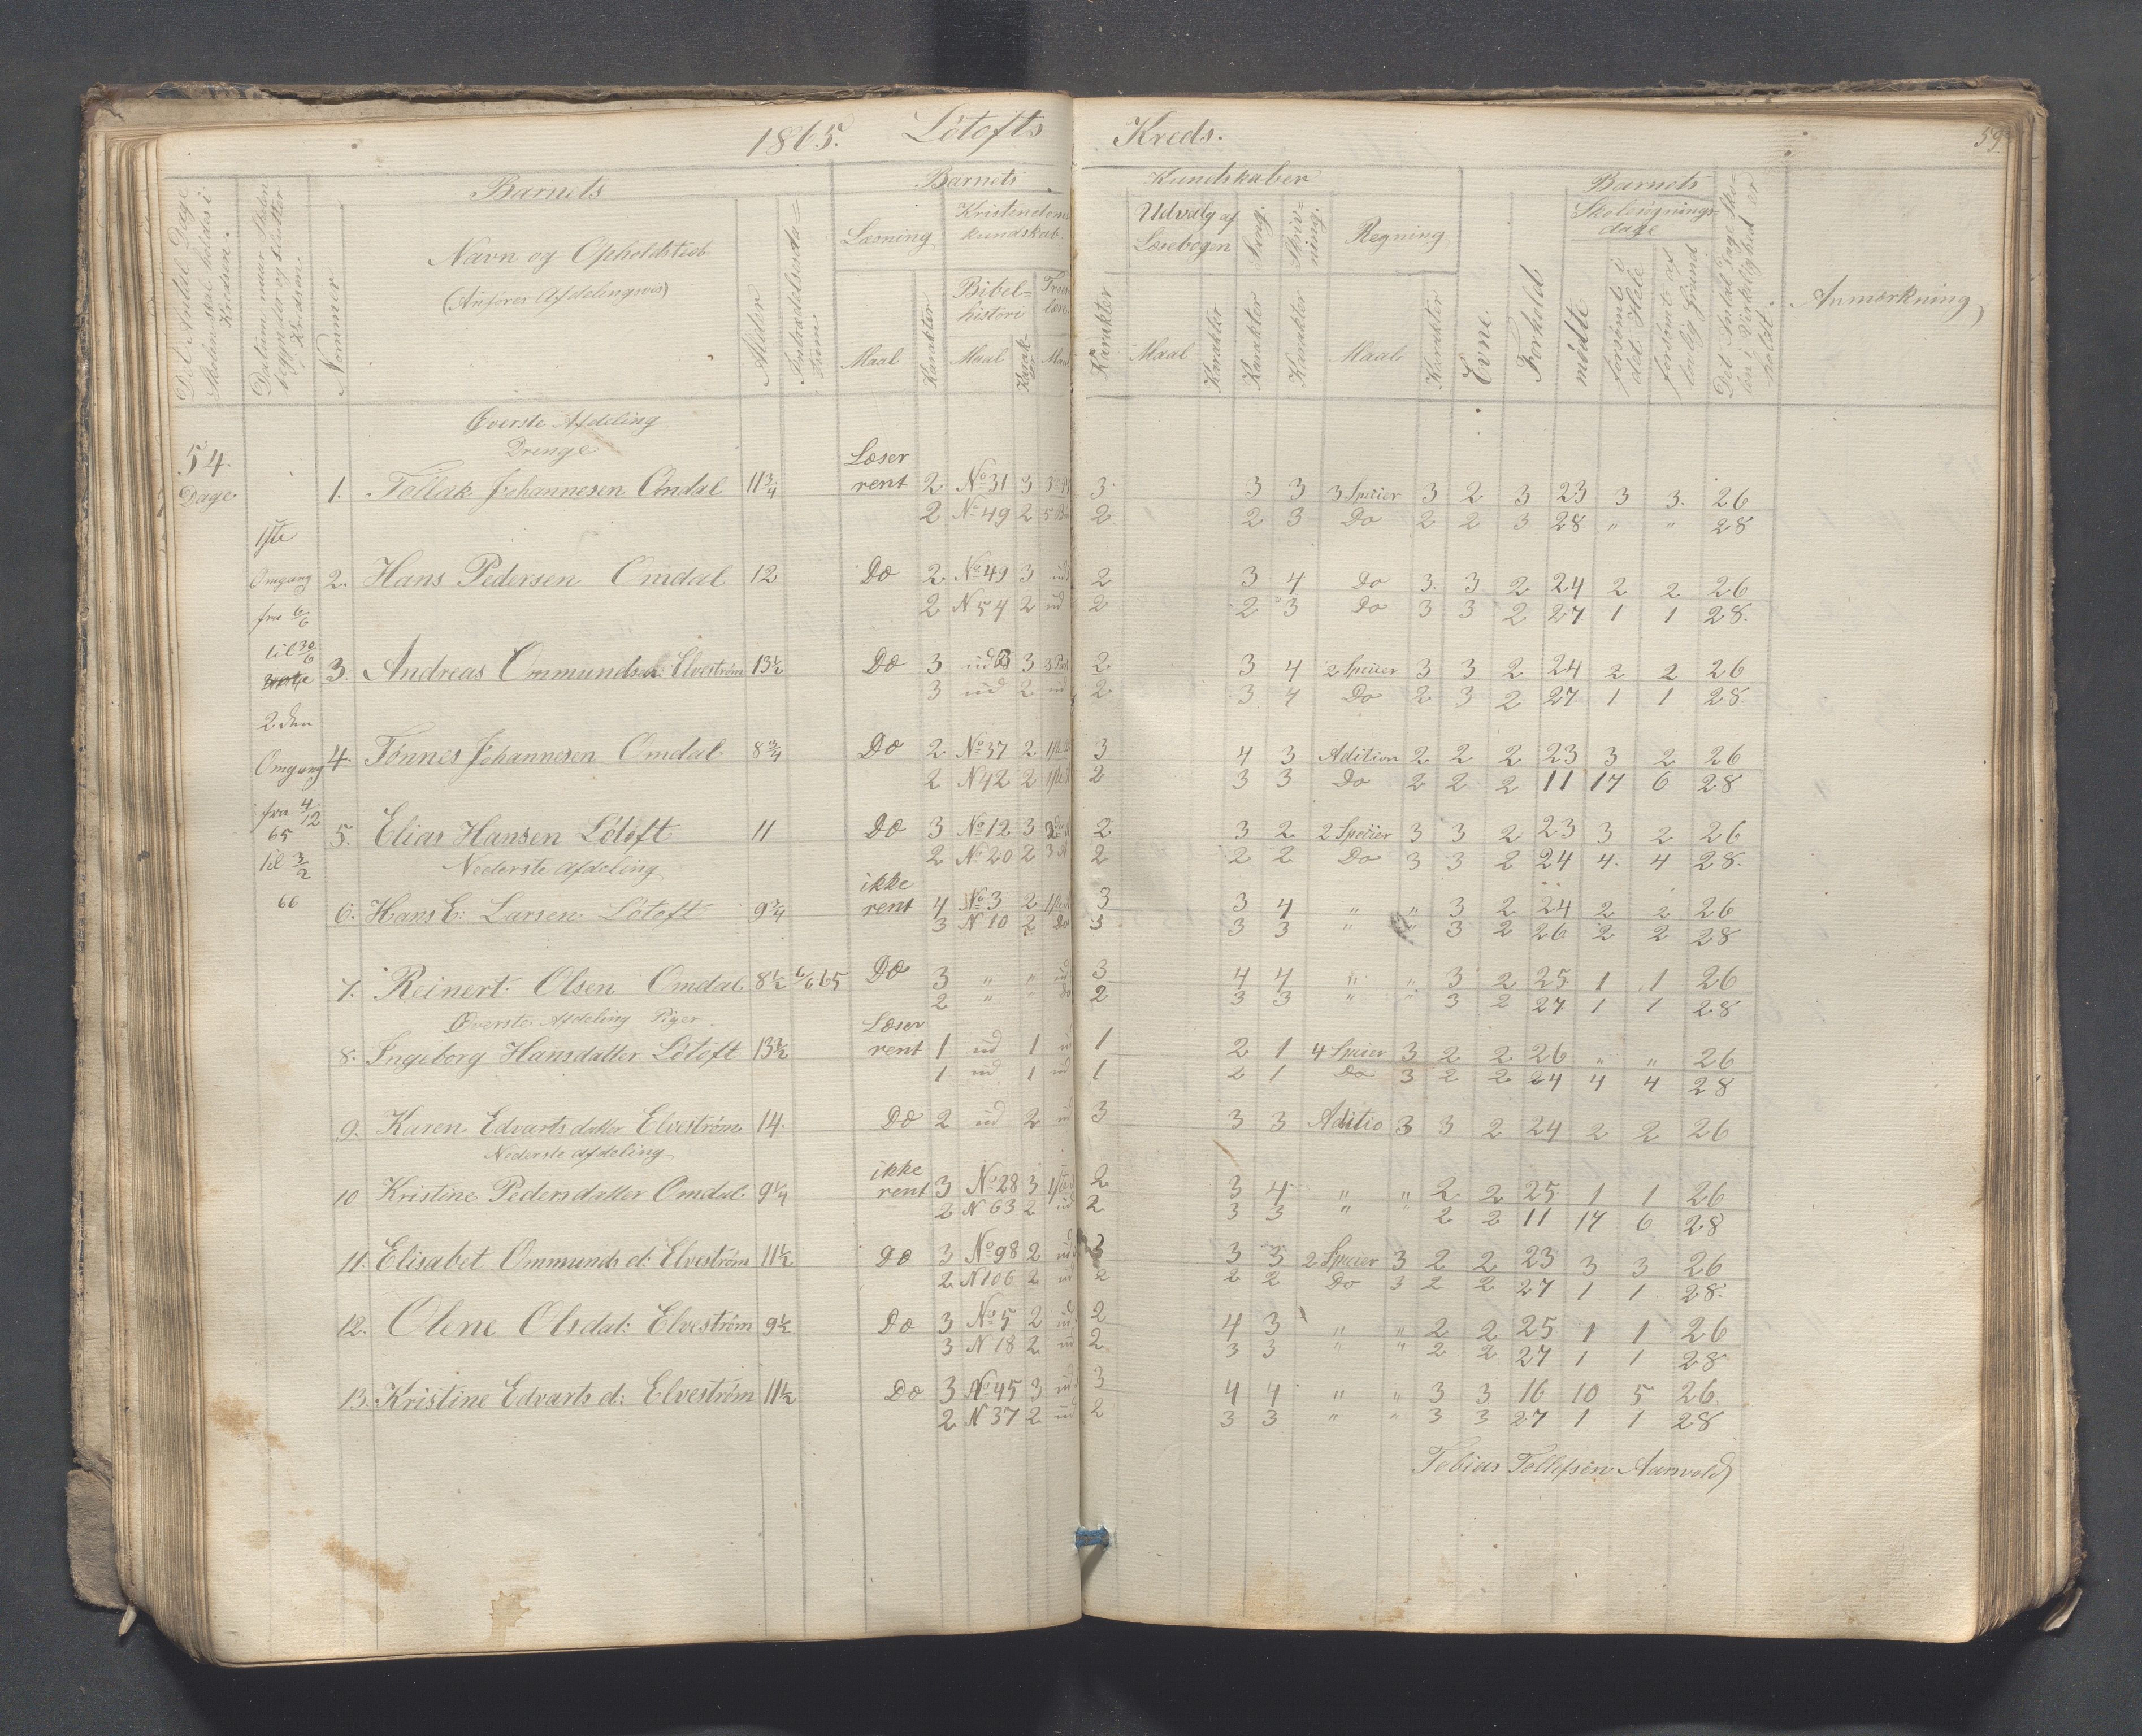 1865. Lötofts Kreds. 59
Det Antal Dage Skolen skal holdes i Kredsen.
Datum naar Skolen begynder og slutter i Kredsen.
Nommer
Barnets
Navn og Opholdsted
(Anføres Afdelingsvis)
Alder
Indtrædelsesdatum
Barnets Kundskaber
Læsning
Maal
Karakter
Kristendomskundskab
Bibelhistori
Maal
Karakter
Troeslære
Maal
Karakter
Udvalg af Læsebogen
Maal
Karakter
Sang.
Karakter
Skrivning.
Karakter
Regning
Maal
Karakter
Evne.
Forhold
Barnets
Skolesøgningsdage
mødte
forsømt i det Hele
forsømt af lovlig Grund
Det Antal Dage Skolen i Virkelighed er holdt.
Anmærkning
54. Dage
1ste
Omgang
fra 6/6
til 30/6
2den
Omgang
fra 4/12
65
til 3/2
66
Øverste Afdeling
Drenge
1. Tollak Johannesen Omdal 11 3/4 Læser rent 2 No 31 3 3 3 3 3 Speiier 3 2 3 23 3 3. 26
2 No 49 2 2 2 3 Do 2 2 3 28 " " 28
2. Hans Pedersen Omdal 12 Do 2 No 49 3 ud 2 3 4 Do 3. 3 2 24 2 2 26
2 N 54 2 ud 2 2 3 Do 3 3 2 27 1 1 28.
3. Andreas Ommundsen Elvestrøm 13 1/2 Do 3 ud 3 3 Part 2 3 4 2 Speiier 3 3 2 24 2 2 26
3 ud 2 ud 2 3 4 Do 2 3 2 27 1 1 28.
4. Tønnes Johannesen Omdal 8 3/4 Do 2 No 37 2 3 4 3 Adition 2 2 2 23 3 2 26
2 N 42 2 2 3 3 Do 2 2 2 11 17 6 28
5. Elias Hansen Lötoft 11 Do 3 No 12 3 2 3 2 2 Speiier 3 3 2 23 3 2 26
2 No 20 2 3 A 2 2 2 Do 3 3 2 24 4. 4 28.
Nederste Afdeling
6. Hans E: Larsen Lötoft 9 3/4 ikke rent 4 No 3 2 3 3 4 " " 3 2 24 2 2 26
3 N 10 2 Do 3 3 3 " " 3 2 26 2 2 28
7. Reinert Olsen Omdal 8 1/2 6/6 65 Do 3 " " ud 3 4 4 " " 3 2 25 1 1 26
2 " " Do 2 3 3 " " 3 2 27 1 1 28
Øverste Afdeling Piger
8. Ingeborg Hansdatter Lötoft 13 1/2 Læser rent 1 ud 1 ud 1 2 1 4 Speier 3 2 2 26 " " 26
1 ud 1 ud 1 2 1 Do 3 2 2 24 4 4 28
9. Karen Edvartsdatter Elvestrøm 14. Do 2 ud 2 ud 3 3 3 Aditio 3 3 2 24 2 2 26
Nederste Afdeling
10 Kristine Pedersdatter Omdal 9 1/4 ikke rent 3 No 28 3 2 3 4 " " 2 2 25 1 1 26
2 N 63 2 ud 2 3 3 " " 2 2 11 17 6 28
11. Elisabet Ommunds d: Elvestrøm 11 1/2 Do 3 No 98 2 ud 3 3 3 2 Speier 3 2 2 23 3 3 26
2 N 106 2 ud 2 2 2 Do 3 2 2 27 1 1 28.
12. Olene Olsdat: Elvestrøm 9 1/2 Do 3 No 5 2 ud 2 4 3 " " 2 2 25 1 1 26
3 N 18 2 ud 2 3 3 " " 2 2 27 1 1 28
13. Kristine Edvarts d: Elvestrøm 11 1/2 Do 3 No 45 3 ud 3 4 4 " " 3 3 16 10 5 26.
2 N 37 2 ud 2 3 3 " " 3 3 27 1 1 28
Tobias Tollefsen Aarsvold